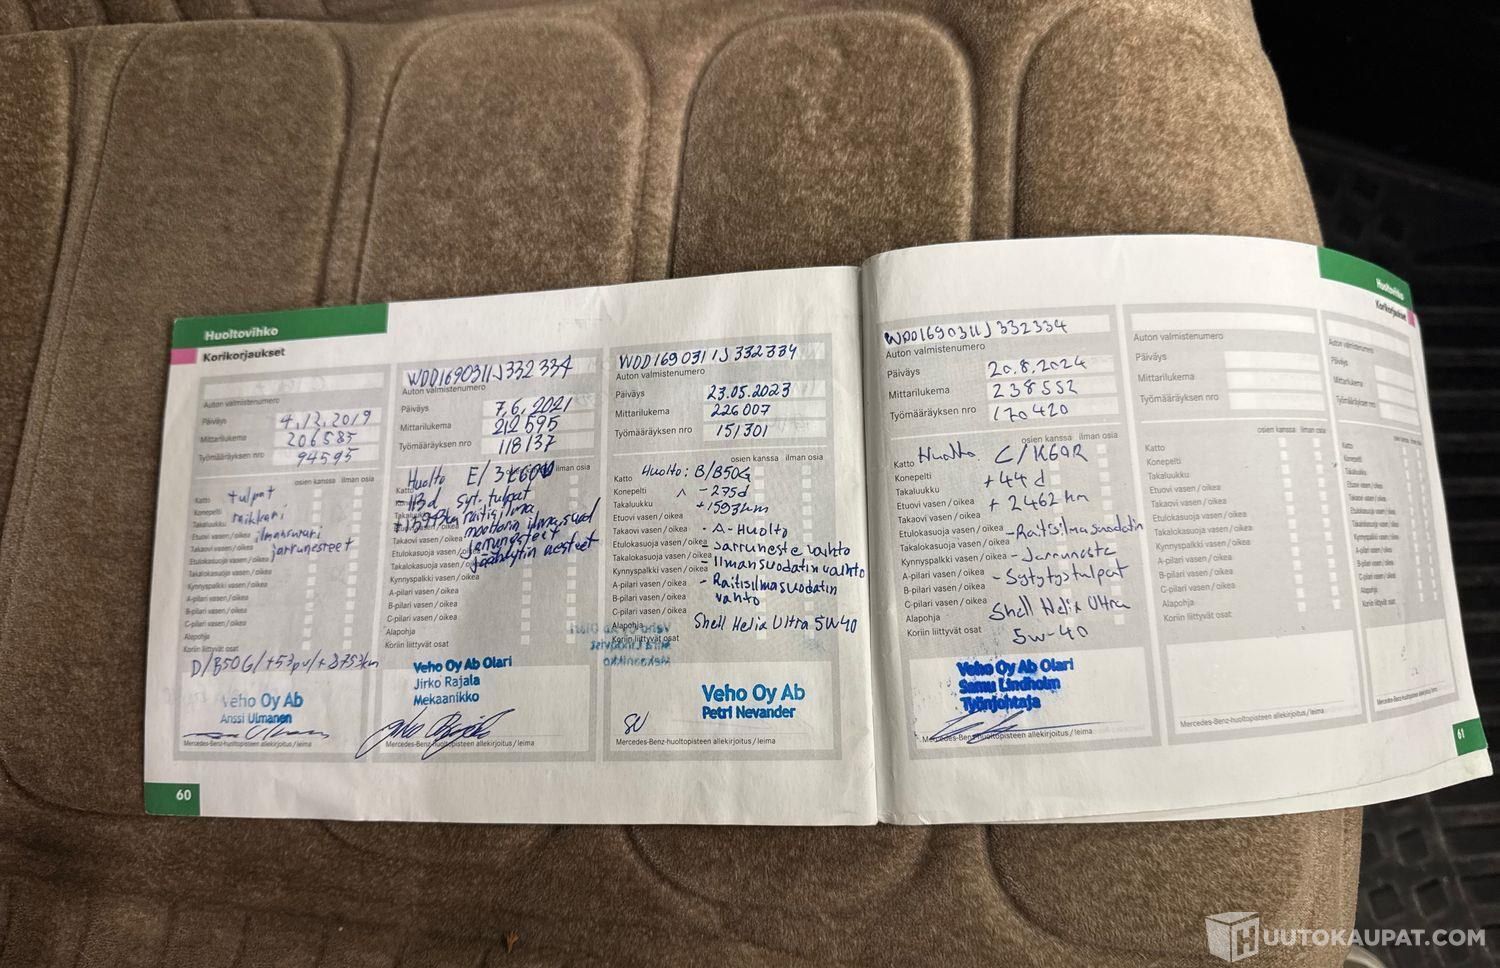 Huoltovihko
Korikorjaukset
Auton valmistenumero
Päiväys 4.12.2019
Mittarilukema 206585
Työmääräyksen nro 94595
osien kanssa ilman osia
Katto tulpat
Konepelti raikkari
Takaluukku
Etuovi vasen/oikea
Takaovi vasen/oikea jarrunesteet
Etulokasuoja vasen/oikea
Takalokasuoja vasen/oikea
Kynnyspalkki vasen/oikea
A-pilari vasen/oikea
B-pilari vasen/oikea
C-pilari vasen/oikea
Alapohja
Koriin liittyvät osat
D/B50G/+53pv/+8753km
Veho Oy Ab
Anssi Ulmanen
Mercedes-Benz-huoltopisteen allekirjoitus/leima
60
WDD1690311J332334
Auton valmistenumero
Päiväys 7.6.2021
Mittarilukema 212595
Työmääräyksen nro 118137
osien kanssa ilman osia
Huolto E/3
Katto
-113d syt.tulpat
raitisilma
moottorin ilmansuod
jarrunesteet
jäähdytin nesteet
Etuovi vasen/oikea
Takaovi vasen/oikea
Etulokasuoja vasen/oikea
Takalokasuoja vasen/oikea
Kynnyspalkki vasen/oikea
A-pilari vasen/oikea
B-pilari vasen/oikea
C-pilari vasen/oikea
Alapohja
Koriin liittyvät osat
Veho Oy Ab Olari
Jirko Rajala
Mekaanikko
Mercedes-Benz-huoltopisteen allekirjoitus/leima
WDD1690311J332334
Auton valmistenumero
Päiväys 23.05.2023
Mittarilukema 226007
Työmääräyksen nro 151301
osien kanssa ilman osia
Katto Huolto: B/B50G
Konepelti -275d
Takaluukku +1593km
Etuovi vasen/oikea
Takaovi vasen/oikea - A-Huolto
Etulokasuoja vasen/oikea - Jarruneste vaihto
Takalokasuoja vasen/oikea - Ilmansuodatin vaihto
Kynnyspalkki vasen/oikea
A-pilari vasen/oikea - Raitisilmasuodatin
B-pilari vasen/oikea vaihto
C-pilari vasen/oikea
Alapohja Shell Helix Ultra 5W40
Koriin liittyvät osat
Veho Oy Ab
Petri Nevander
Mercedes-Benz-huoltopisteen allekirjoitus/leima
Huoltovihko
Korikorjaukset
WDD1690311J332334
Auton valmistenumero
Päiväys 20.8.2024
Mittarilukema 238552
Työmääräyksen nro 170420
osien kanssa ilman osia
Katto Huolto C/K60R
Konepelti +44d
Takaluukku +2462km
Etuovi vasen/oikea
Takaovi vasen/oikea -Raitisilmasuodatin
Etulokasuoja vasen/oikea
Takalokasuoja vasen/oikea -Jarruneste
Kynnyspalkki vasen/oikea -Sytytystulpat
A-pilari vasen/oikea
B-pilari vasen/oikea
C-pilari vasen/oikea Shell Helix Ultra
Alapohja 5W-40
Koriin liittyvät osat
Veho Oy Ab Olari
Samu Lindholm
Työnjohtaja
Mercedes-Benz-huoltopisteen allekirjoitus/leima
Auton valmistenumero
Päiväys
Mittarilukema
Työmääräyksen nro
osien kanssa ilman osia
Katto
Konepelti
Takaluukku
Etuovi vasen/oikea
Takaovi vasen/oikea
Etulokasuoja vasen/oikea
Takalokasuoja vasen/oikea
Kynnyspalkki vasen/oikea
A-pilari vasen/oikea
B-pilari vasen/oikea
C-pilari vasen/oikea
Alapohja
Koriin liittyvät osat
Mercedes-Benz-huoltopisteen allekirjoitus/leima
Auton valmistenumero
Päiväys
Mittarilukema
Työmääräyksen nro
Katto
Konepelti
Takaluukku
Etuovi vasen/oikea
Takaovi vasen/oikea
Etulokasuoja vasen/oikea
Takalokasuoja vasen/oikea
Kynnyspalkki vasen/oikea
A-pilari vasen/oikea
B-pilari vasen/oikea
C-pilari vasen/oikea
Alapohja
Koriin liittyvät osat
61
HUUTOKAUPAT.COM